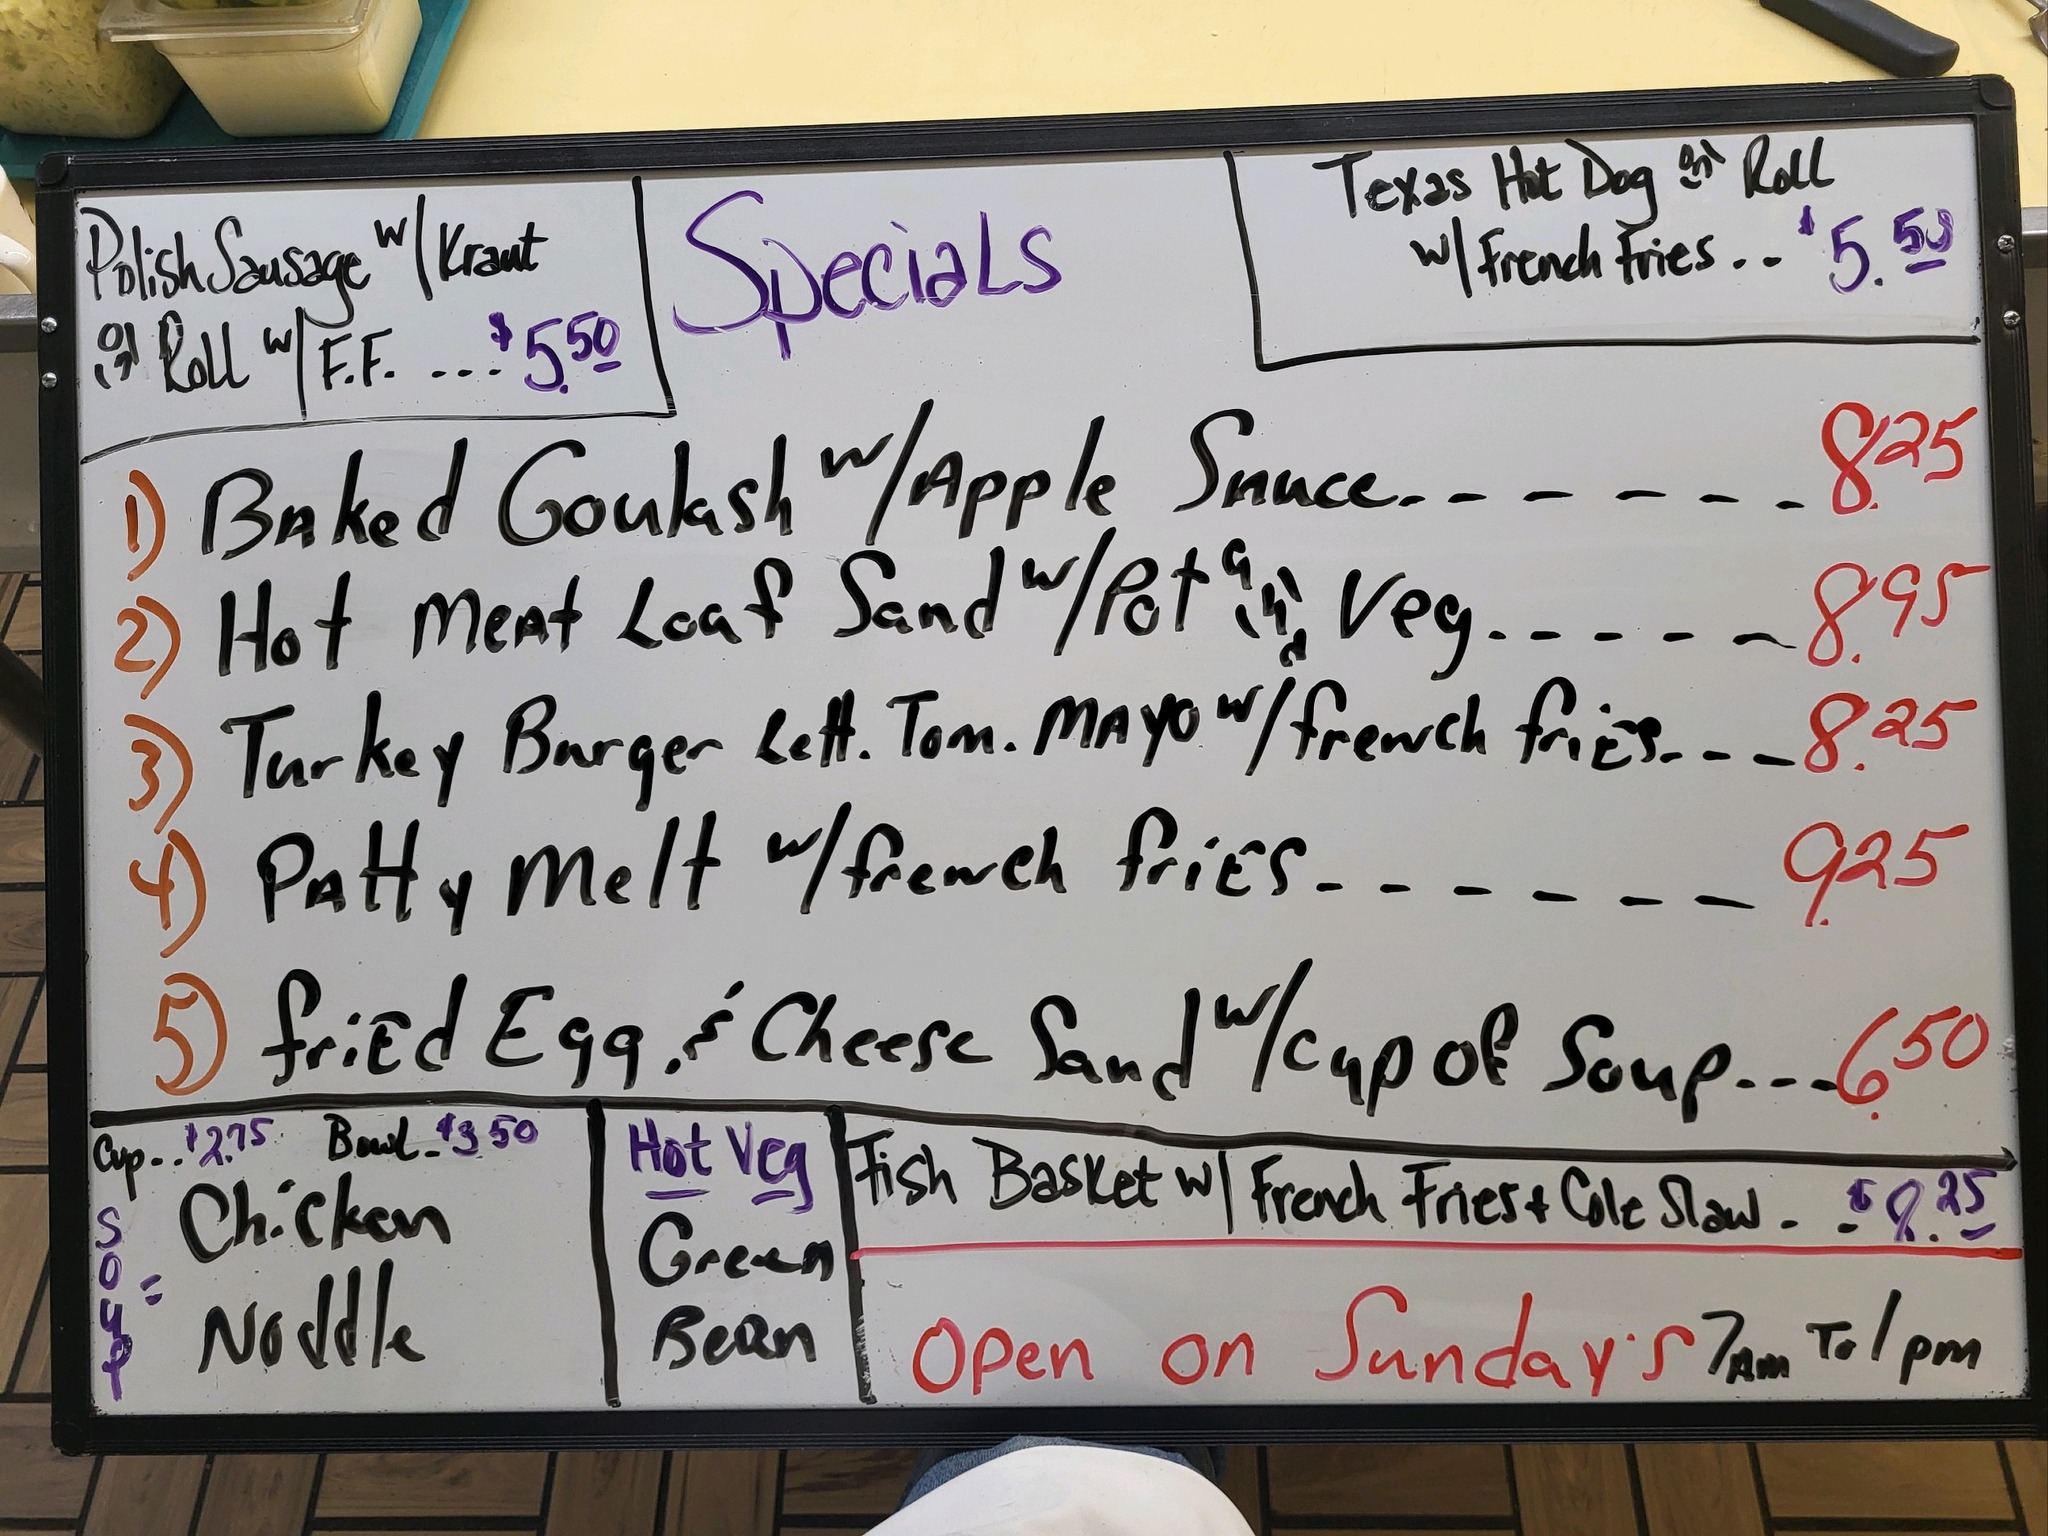 Polish Sausage w/ Kraut
on Roll w/ F.F. ... $5.50
Specials
Texas Hot Dog on Roll
w/ French Fries .. $5.50
1) Baked Goulash w/ Apple Sauce. - - - - - - 8.25
2) Hot Meat Loaf Sand w/ Pot and Veg. - - - - - 8.95
3) Turkey Burger Lett. Tom. Mayo w/ french fries. - - - 8.25
4) Patty Melt w/ french fries. - - - - - - 9.25
5) fried Egg & Cheese Sand w/ cup of Soup... 6.50
Cup.. $2.75 Bowl. $3.50
SOUP =
Chicken
Noddle
Hot Veg
Green
Bean
Fish Basket w/ French Fries + Cole Slaw . . $8.25
Open on Sunday's 7am To 1pm